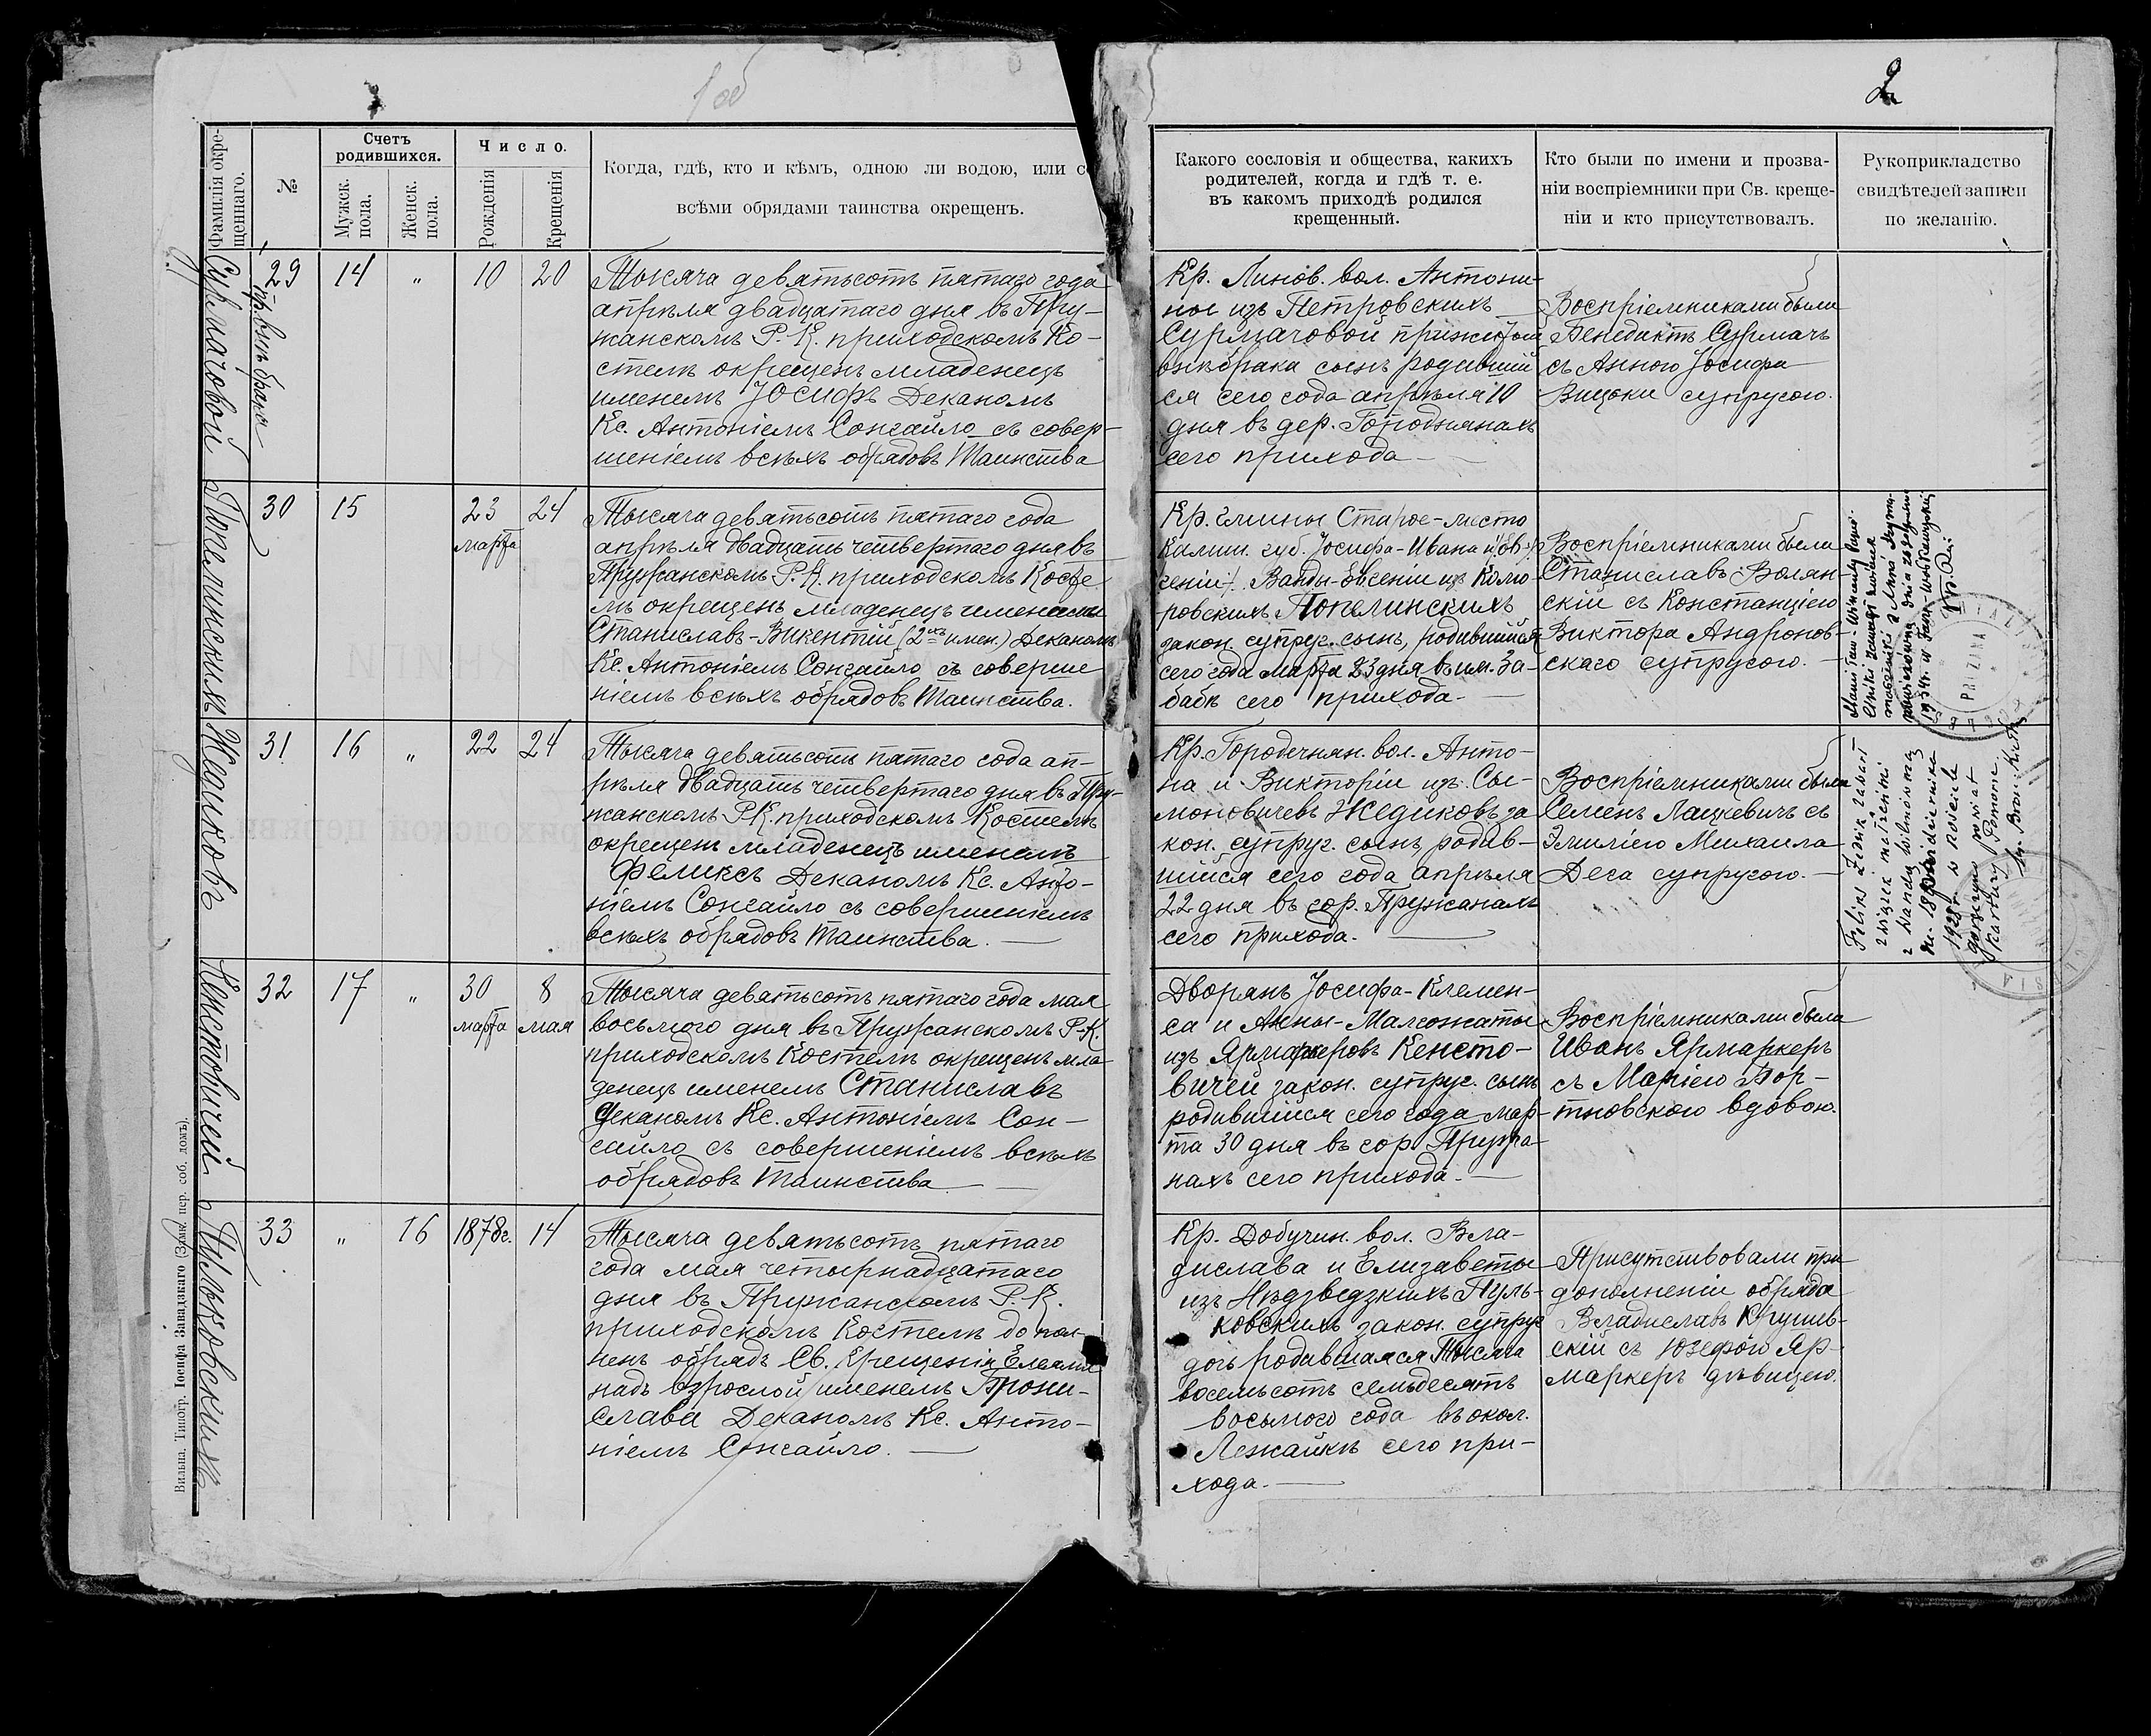 1об
2
Фамилія окре-
щеннаго.
№
Счетъ
родившихся.
Мужск.
пола.
Женск.
пола.
Число.
Рожденія
Крещенія
Когда, гдѣ, кто и кѣмъ, одною ли водою, или со
всѣми обрядами таинства окрещенъ.
Какого сословія и общества, какихъ
родителей, когда и гдѣ т. е.
въ какомъ приходѣ родился
крещенный.
Кто были по имени и прозва-
ніи воспріемники при Св. креще-
ніи и кто присутствовалъ.
Рукоприкладство
свидѣтелей записи
по желанію.
Сурмачовой
пр. внѣ брака
29 14 " 10 20
Тысяча девятьсотъ пятаго года
апрѣля двадцатаго дня въ Пру-
жанскомъ Р. К. приходскомъ Ко-
стелѣ окрещенъ младенецъ
именемъ Іосифъ Деканомъ
Кс. Антоніемъ Сонгайло съ совер-
шеніемъ всѣхъ обрядовъ Таинства
Кр. Линов. вол. Антони-
ны изъ Петровскихъ
Сурмачовой прижитой
внѣ брака сынъ родившій
ся сего года апрѣля 10
дня въ дер. Городнянахъ
сего прихода
Воспріемниками были
Бенедиктъ Сурмачъ
съ Анною Іосифа
Вицоки супругою.
Попелинскихъ
30 15 23 24
марта
Тысяча девятьсотъ пятаго года
апрѣля двадцать четвертаго дня въ
Пружанскомъ Р. К. приходскомъ Косте
лѣ окрещенъ младенецъ именемъ
Станиславъ-Викентій (2хъ имен.) Деканомъ
Кс. Антоніемъ Сонгайло съ соверше
ніемъ всѣхъ обрядовъ Таинства.
Кр. гмины Старое-место
Калиш. губ. Іосифа-Ивана и
Ванды-Евгеніи изъ Комо
ровскихъ Попелинскихъ
закон. супруг. сынъ, родившійся
сего года марта 23 дня въ им. За-
бабѣ сего прихода.
Воспріемниками были
Станиславъ Волян-
скій съ Констанціею
Виктора Андронов-
скаго супругою.
PRUŻANA
Жедиковъ
31 16 " 22 24
Тысяча девятьсотъ пятаго года ап-
рѣля двадцать четвертаго дня въ Пру-
жанскомъ Р.К. приходскомъ Костелѣ
окрещенъ младенецъ именемъ
Феликсъ Деканомъ Кс. Анто-
ніемъ Сонгайло съ совершеніемъ
всѣхъ обрядовъ Таинства.
Кр. Городечнян. вол. Анто-
на и Викторіи изъ Сы-
моновичевъ Жедиковъ за
кон. супруг. сынъ, родив-
шійся сего года апрѣля
22 дня въ гор. Пружанахъ
сего прихода.
Воспріемниками были
Семенъ Лацкевичъ съ
Эмиліею Михаила
Деса супругою.
Feliks Żedzik zawarł
związek małżeński
z Wandą
1928 r. w kościele
powiat
Kartuzy Pomorze.
Кенстовичей
32 17 " 30 8
марта мая
Тысяча девятьсотъ пятаго года мая
восьмого дня въ Пружанскомъ Р-К.
приходскомъ Костелѣ окрещенъ мла
денецъ именемъ Станиславъ
Деканомъ Кс. Антоніемъ Сон-
гайло съ совершеніемъ всѣхъ
обрядовъ Таинства
Дворянъ Іосифа-Клемен-
са и Анны-Малгожаты
изъ Ярмаркеровъ Кенсто-
вичей закон. супруг. сынъ
родившійся сего года мар-
та 30 дня въ гор. Пружа-
нахъ сего прихода.
Воспріемниками были
Иванъ Ярмаркеръ
съ Маріею Бор-
тновскою вдовою.
Пульковскихъ
33 " 16 1878г. 14
Тысяча девятьсотъ пятаго
года мая четырнадцатаго
дня въ Пружанскомъ Р. К.
приходскомъ Костелѣ допол-
ненъ обрядъ Св. Крещенія Елеями
надъ взрослой именемъ Брони-
слава Деканомъ Кс. Анто-
ніемъ Сонгайло.
Кр. Добучин. вол. Вла-
дислава и Елизаветы
изъ Нѣдзведзкихъ Пуль-
ковскихъ закон. супруг
дочь родившаяся Тысяча
восемьсотъ семьдесятъ
восьмого года въ окол.
Лежайкѣ сего при-
хода.
Присутствовали при
дополненіи обряда
Владиславъ Крушев-
скій съ Юзефой Яр-
маркеръ дѣвицею.
Вильна. Типогр. Іосифа Завадзкаго (Замк. пер. соб. домъ).